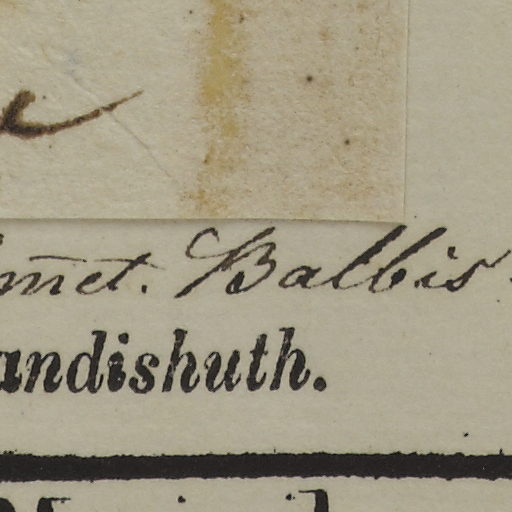 m̄et. Balbis.
andishuth.